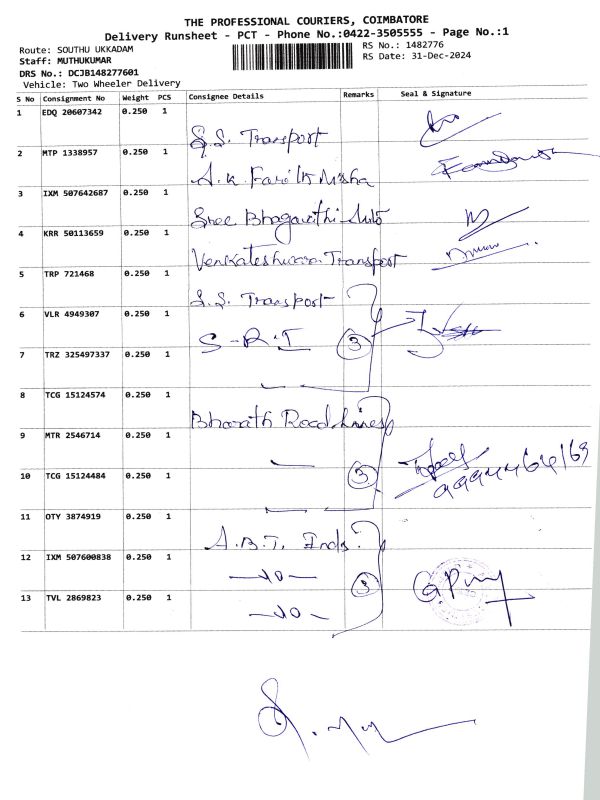 THE PROFESSIONAL COURIERS, COIMBATORE
Delivery Runsheet - PCT - Phone No.:0422-3505555 - Page No.:1
Route: SOUTHU UKKADAM
RS No.: 1482776
Staff: MUTHUKUMAR
RS Date: 31-Dec-2024
DRS No.: DCJB148277601
Vehicle: Two Wheeler Delivery
S No Consignment No Weight PCS Consignee Details Remarks Seal & Signature
1 EDQ 20607342 0.250 1 S.S. Transport
2 MTP 1338957 0.250 1 A.K
3 IXM 507642687 0.250 1 Sree Bhagavathi Auto
4 KRR 50113659 0.250 1 Venkateshwara Transport
5 TRP 721468 0.250 1 S.S. Transport
6 VLR 4949307 0.250 1 S-R.I 3
7 TRZ 325497337 0.250 1
8 TCG 15124574 0.250 1 Bharath Road Lines
9 MTR 2546714 0.250 1
10 TCG 15124484 0.250 1 3
11 OTY 3874919 0.250 1 A.B.T. Inds.
12 IXM 507600838 0.250 1 3
13 TVL 2869823 0.250 1